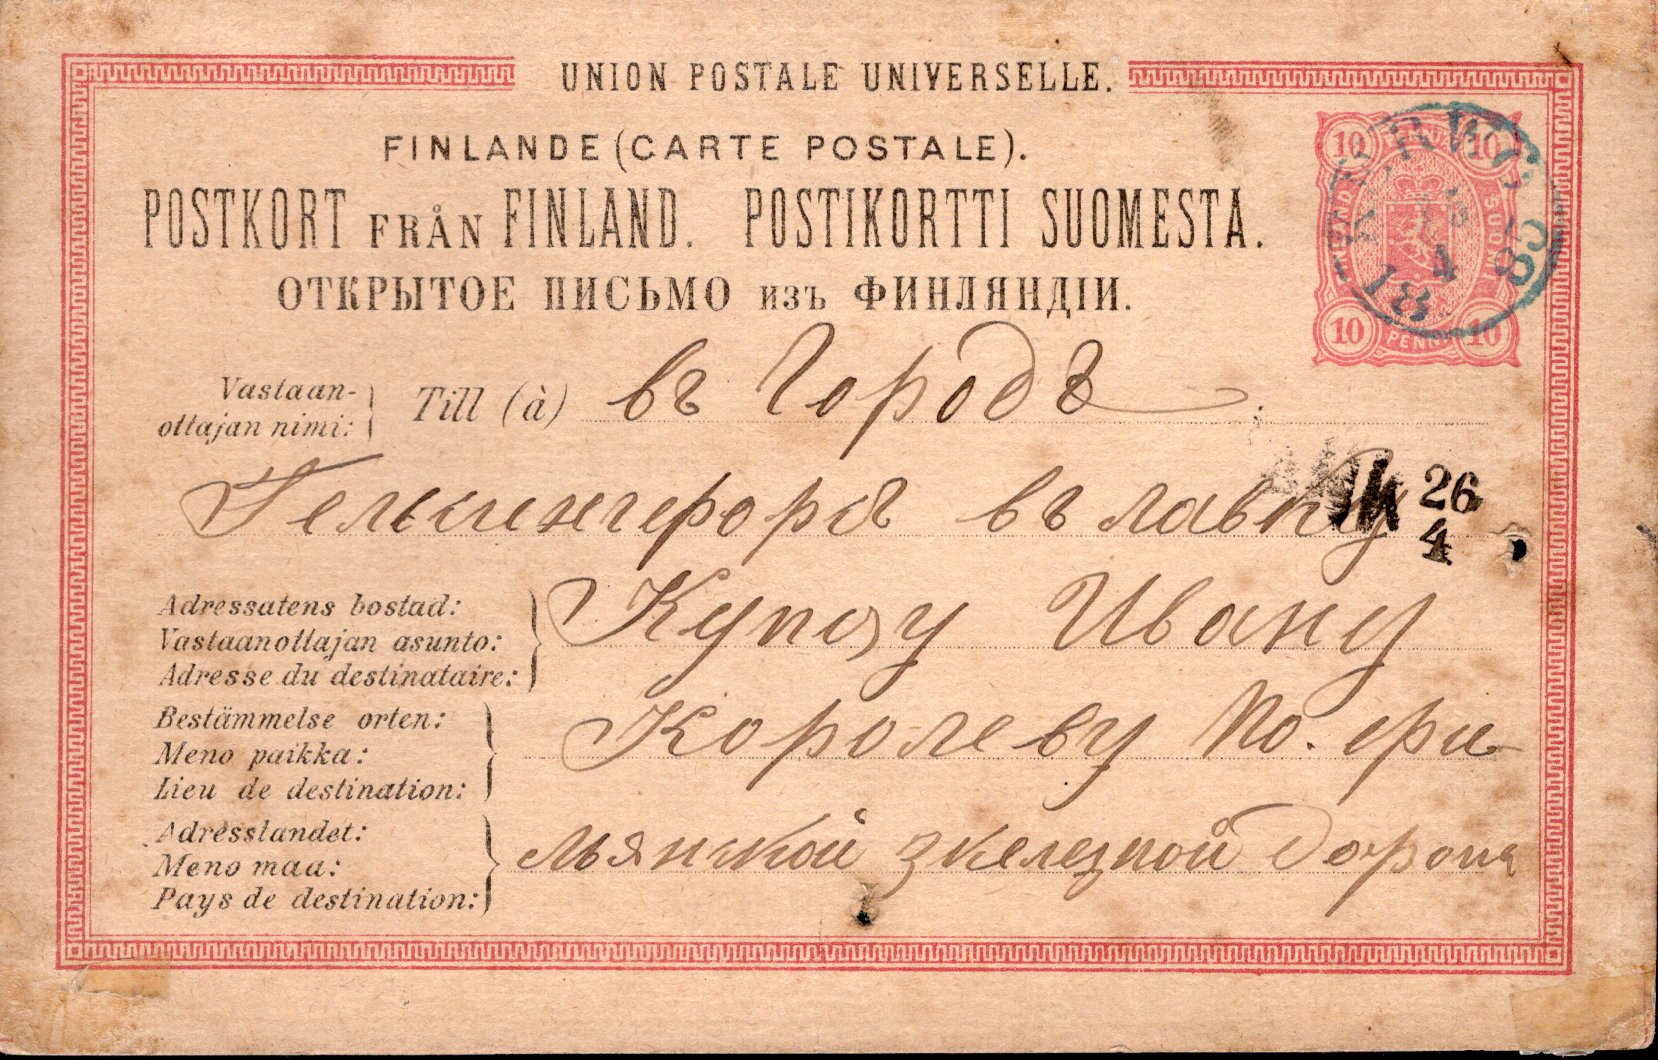 UNION POSTALE UNIVERSELLE.
FINLANDE (CARTE POSTALE).
POSTKORT FRÅN FINLAND. POSTIKORTTI SUOMESTA.
ОТКРЫТОЕ ПИСЬМО изъ ФИНЛЯНДІИ.
10 10
10 PENNI 10
KERWO
85
Vastaan-
ottajan nimi:
Till (à) въ Городъ
Гельсингфорсъ въ лавку
26
4
Adressatens bostad:
Vastaanottajan asunto:
Adresse du destinataire:
Купцу Ивану
Bestämmelse orten:
Meno paikka:
Lieu de destination:
Королеву по. фри
Adresslandet:
Meno maa:
Pays de destination:
железной